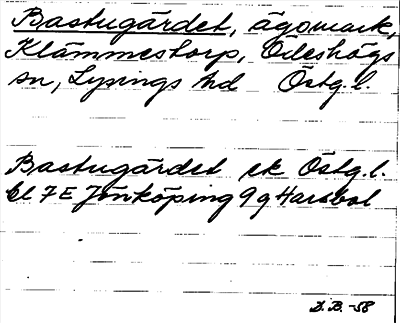 Bastugärdet, ägomark,
Klämmestorp, Ödeshögs
sn, Lysings hd Östg.l.
Bastugärdet ek Östg.l.
bl 7E Jönköping 9g Harsbol
D.B.-58